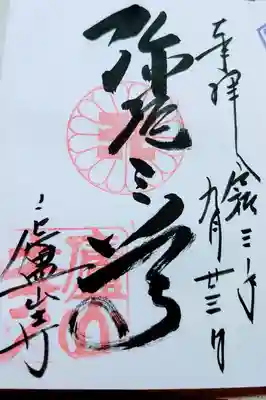 奉拝
令和三年
九月廿三日
弥陀三尊
廬山寺